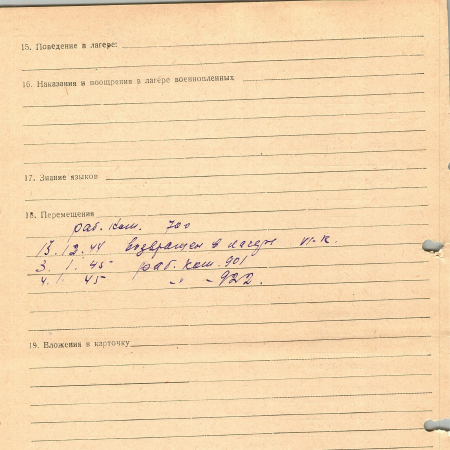 15. Поведение в лагере:
16. Наказания и поощрения в лагере военнопленных
17. Знание языков
18. Перемещения
раб. Ком. 700
13. 12. 44 возвращен в лагерь VI-K.
3. 1. 45 раб. Ком. 901
4. 1. 45 -„- 922.
19. Вложения в карточку